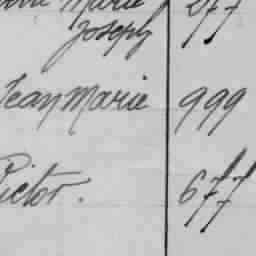 Marie 277
Joseph
Jean Marie 999
Victor. 677